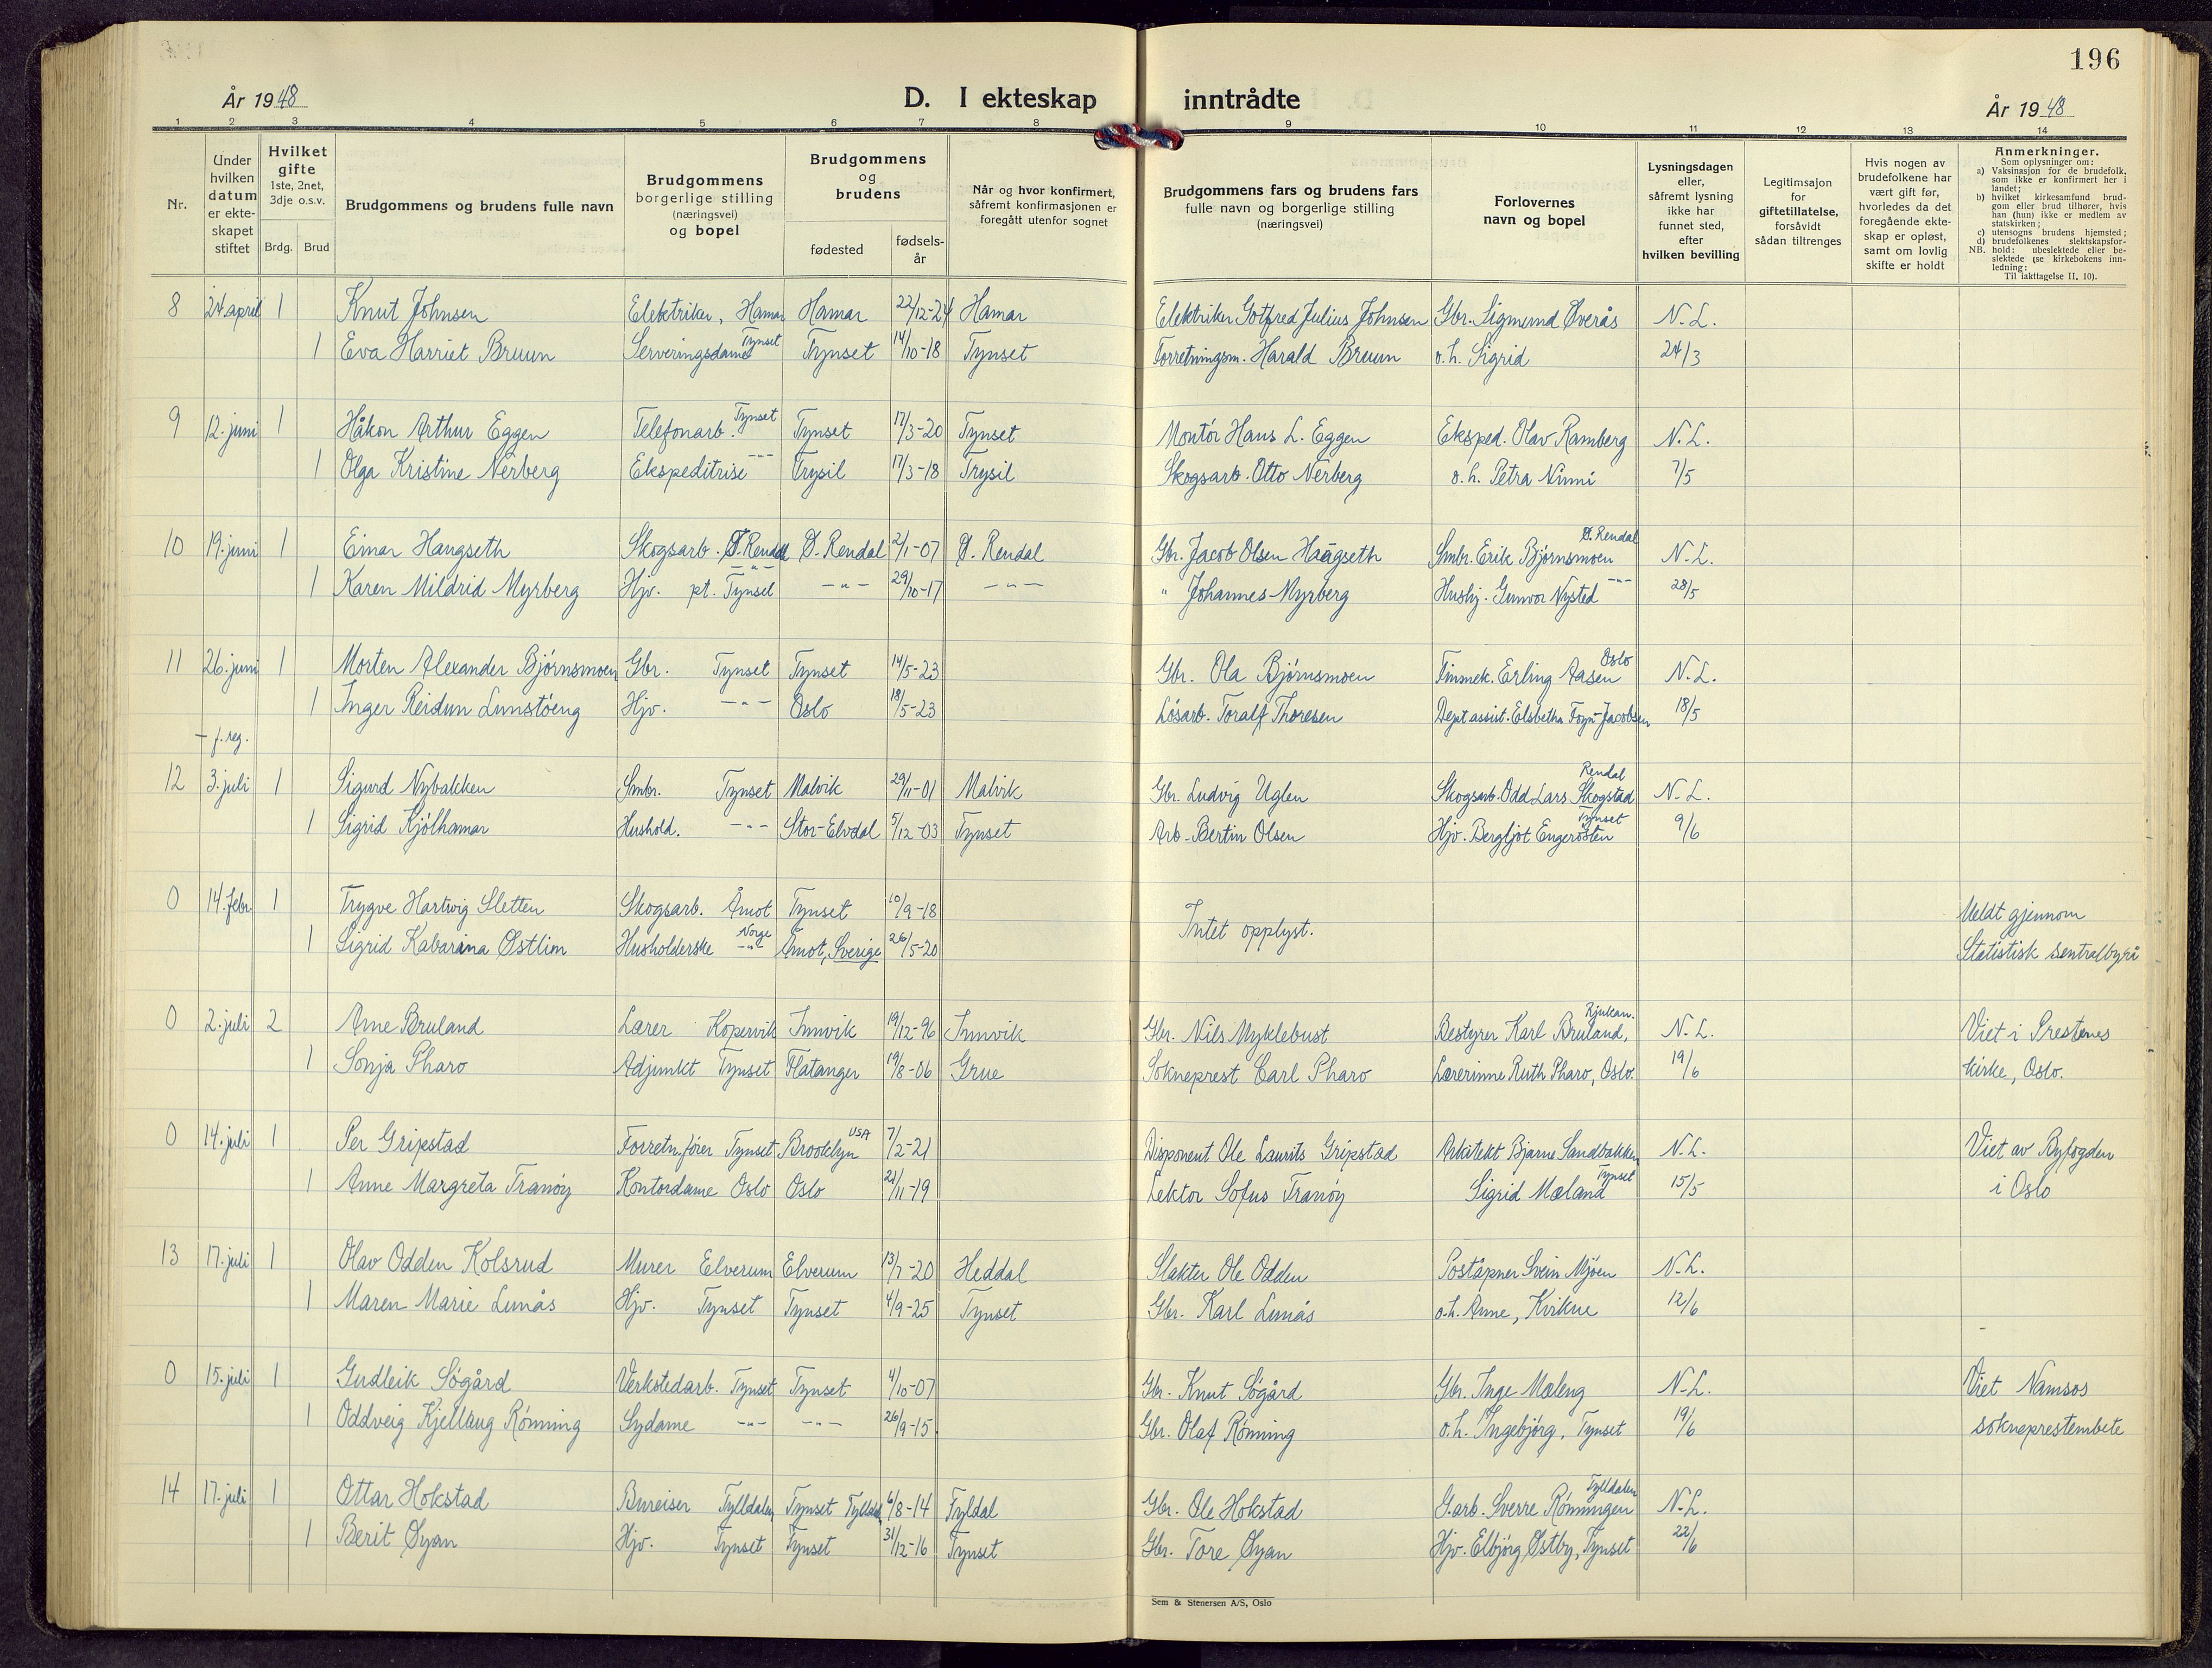 196
År 1948
D. I ekteskap inntrådte
År 1948
1 2 3 4 5 6 7 8 9 10 11 12 13 14
Nr.
Under hvilken datum er ekte-skapet stiftet
Hvilket gifte 1ste, 2net, 3dje o.s.v.
Brdg. Brud
Brudgommens og brudens fulle navn
Brudgommens borgerlige stilling (næringsvei) og bopel
Brudgommens og brudens
fødested
fødsels-år
Når og hvor konfirmert, såfremt konfirmasjonen er foregått utenfor sognet
Brudgommens fars og brudens fars fulle navn og borgerlige stilling (næringsvei)
Forlovernes navn og bopel
Lysningsdagen eller, såfremt lysning ikke har funnet sted, efter hvilken bevilling
Legitimsajon for giftetillatelse, forsåvidt sådan tiltrenges
Hvis nogen av brudefolkene har vært gift før, hvorledes da det foregående ekte-skap er opløst, samt om lovlig skifte er holdt
Anmerkninger.
Som oplysninger om:
a) Vaksinasjon for de brudefolk, som ikke er konfirmert her i landet;
b) hvilket kirkesamfund brud-gom eller brud tilhører, hvis han (hun) ikke er medlem av statskirken;
c) utensogns brudens hjemsted;
d) brudefolkenes slektskapsfor-hold: ubeslektede eller be-slektede (se kirkebokens inn-ledning:
NB. Til iakttagelse II, 10).
8 24 april 1 Knut Johnsen Elektriker, Hamar Hamar 22/12-24 Hamar Elektriker Gotfred Julius Johnsen Gbr. Sigmund Øverås N.L.
1 Eva Harriet Bruun Serveringsdame Tynset Tynset 14/10-18 Tynset Forretningsm. Harald Bruun o.h. Sigrid 24/3
9 12. juni 1 Håkon Arthur Eggen Telefonarb. Tynset Tynset 17/3-20 Tynset Montör Hans L. Eggen Eksped. Olav Ramberg N.L.
1 Olga Kristine Nerberg Ekspeditrise -"- Trysil 17/3-18 Trysil Skogsarb. Otto Nerberg o.h. Petra Ninni 7/5
10 19. juni 1 Einar Haugseth Skogsarb. Ø. Rendal Ø. Rendal 2/1-07 Ø. Rendal Gbr. Jacob Olsen Haugseth Smbr. Erik Björnsmoen Ø. Rendal N.L.
1 Karen Mildrid Myrberg Hjv. -"- pt. Tynset -"- 29/10-17 -"- " Johannes Myrberg Hushj. Gunvor Nysted -"- 28/5
11 26. juni 1 Morten Alexander Björnsmoen Gbr. Tynset Tynset 14/5-23 Gbr. Ola Björnsmoen Finmek. Erling Aasen Oslo N.L.
1 Inger Reidun Lunstöeng Hjv. -"- Oslo 18/5-23 Lösarb. Toralf Thoresen Dept assist. Elsbetha Foyn-Jacobsen 18/5
+ f. reg.
12 3. juli 1 Sigurd Nybakken Smbr. Tynset Malvik 29/11-01 Malvik Gbr. Ludvig Uglen Skogsarb. Odd Lars Skogstad Rendal N.L.
1 Sigrid Kjölhamar Hushold. -"- Stor-Elvdal 5/12-03 Tynset Arb. Bertin Olsen Hjv. Bergljot Engerösten Tynset 9/6
0 14. febr 1 Trygve Hartwig Sletten Skogsarb. Åmot Norge Tynset 10/9-18 Intet opplyst. Meldt gjennom
1 Sigrid Kabarina Østlim Husholderske -"- Åmot, Sverige 26/5-20 Statistisk sentralbyrå
0 2. juli 2 Arne Bruland Lærer Kopervik Innvik 19/12-96 Innvik Gbr. Nils Myklebust Bestyrer Karl Bruland, Rjukan. N.L. Viet i Prestenes
1 Sonja Pharo Adjunkt Tynset Flatanger 19/8-06 Grue Sokneprest Carl Pharo Lærerinne Ruth Pharo, Oslo. 19/6 kirke, Oslo.
0 14. juli 1 Per Gripstad Forretn.förer Tynset Brooklyn USA 7/2-21 Disponent Ole Laurits Gripstad Arkitekt Bjarne Sandbakken N.L. Viet av Byfogden
1 Anne Margreta Tranöy Kontordame Oslo Oslo 21/11-19 Lektor Sofus Tranöy Sigrid Mæland Tynset 15/5 i Oslo
13 17. juli 1 Olav Odden Kolsrud Murer Elverum Elverum 13/7-20 Heddal Slakter Ole Odden Poståpner Svein Mjöen N.L.
1 Maren Marie Lunås Hjv. Tynset Tynset 4/9-25 Tynset Gbr. Karl Lunås o.h. Anne, Kvikne 12/6
0 15. juli 1 Gudleik Sögård Verkstedarb. Tynset Tynset 4/10-07 Gbr. Knut Sögård Gbr. Inge Mæleng N.L. Viet Namsos
1 Oddveig Kjellaug Rönning Sydame -"- -"- 26/9-15 Gbr. Olaf Rönning o.h. Ingebjörg, Tynset 19/6 sokneprestembete
14 17. juli 1 Ottar Hokstad Bureiser Tylldalen Tynset Tylldal 6/8-14 Tyldal Gbr. Ole Hokstad G.arb. Sverre Rönningen Tylldalen N.L.
1 Berit Øyan Hjv. Tynset Tynset 31/12-16 Tynset Gbr. Tore Øyan Hjv. Elbjörg Østby, Tynset 22/6
Sem & Stenersen A/S, Oslo